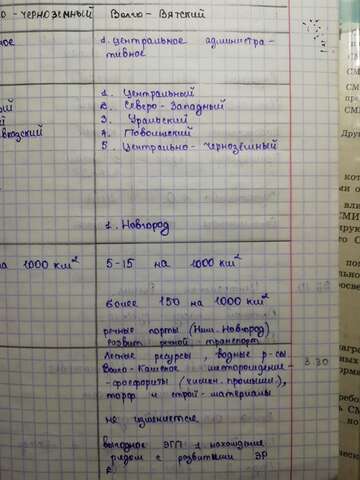 о - черноземный Волго - Вятский
ное
1. центральное администра-
тивное
1. Центральный
2. Северо - Западный
3. Уральский
4. Поволжский
5. Центрально - чернозёмный
1. Новгород
на 1000 км²
5-15 на 1000 км²
более 150 на 1000 км²
речные порты (Ниж. Новгород)
развит речной транспорт
Лесные ресурсы, водные р-сы
Волго-Камское месторождение
-фосфориты (химич. промышл.),
торф и строй-материалы
3.30
не изменяется
выгодное ЭГП 1. нахождение
рядом с развитыми ЭР
2
СМ
СМИ
Друг
кот
вли
СМИ
пос